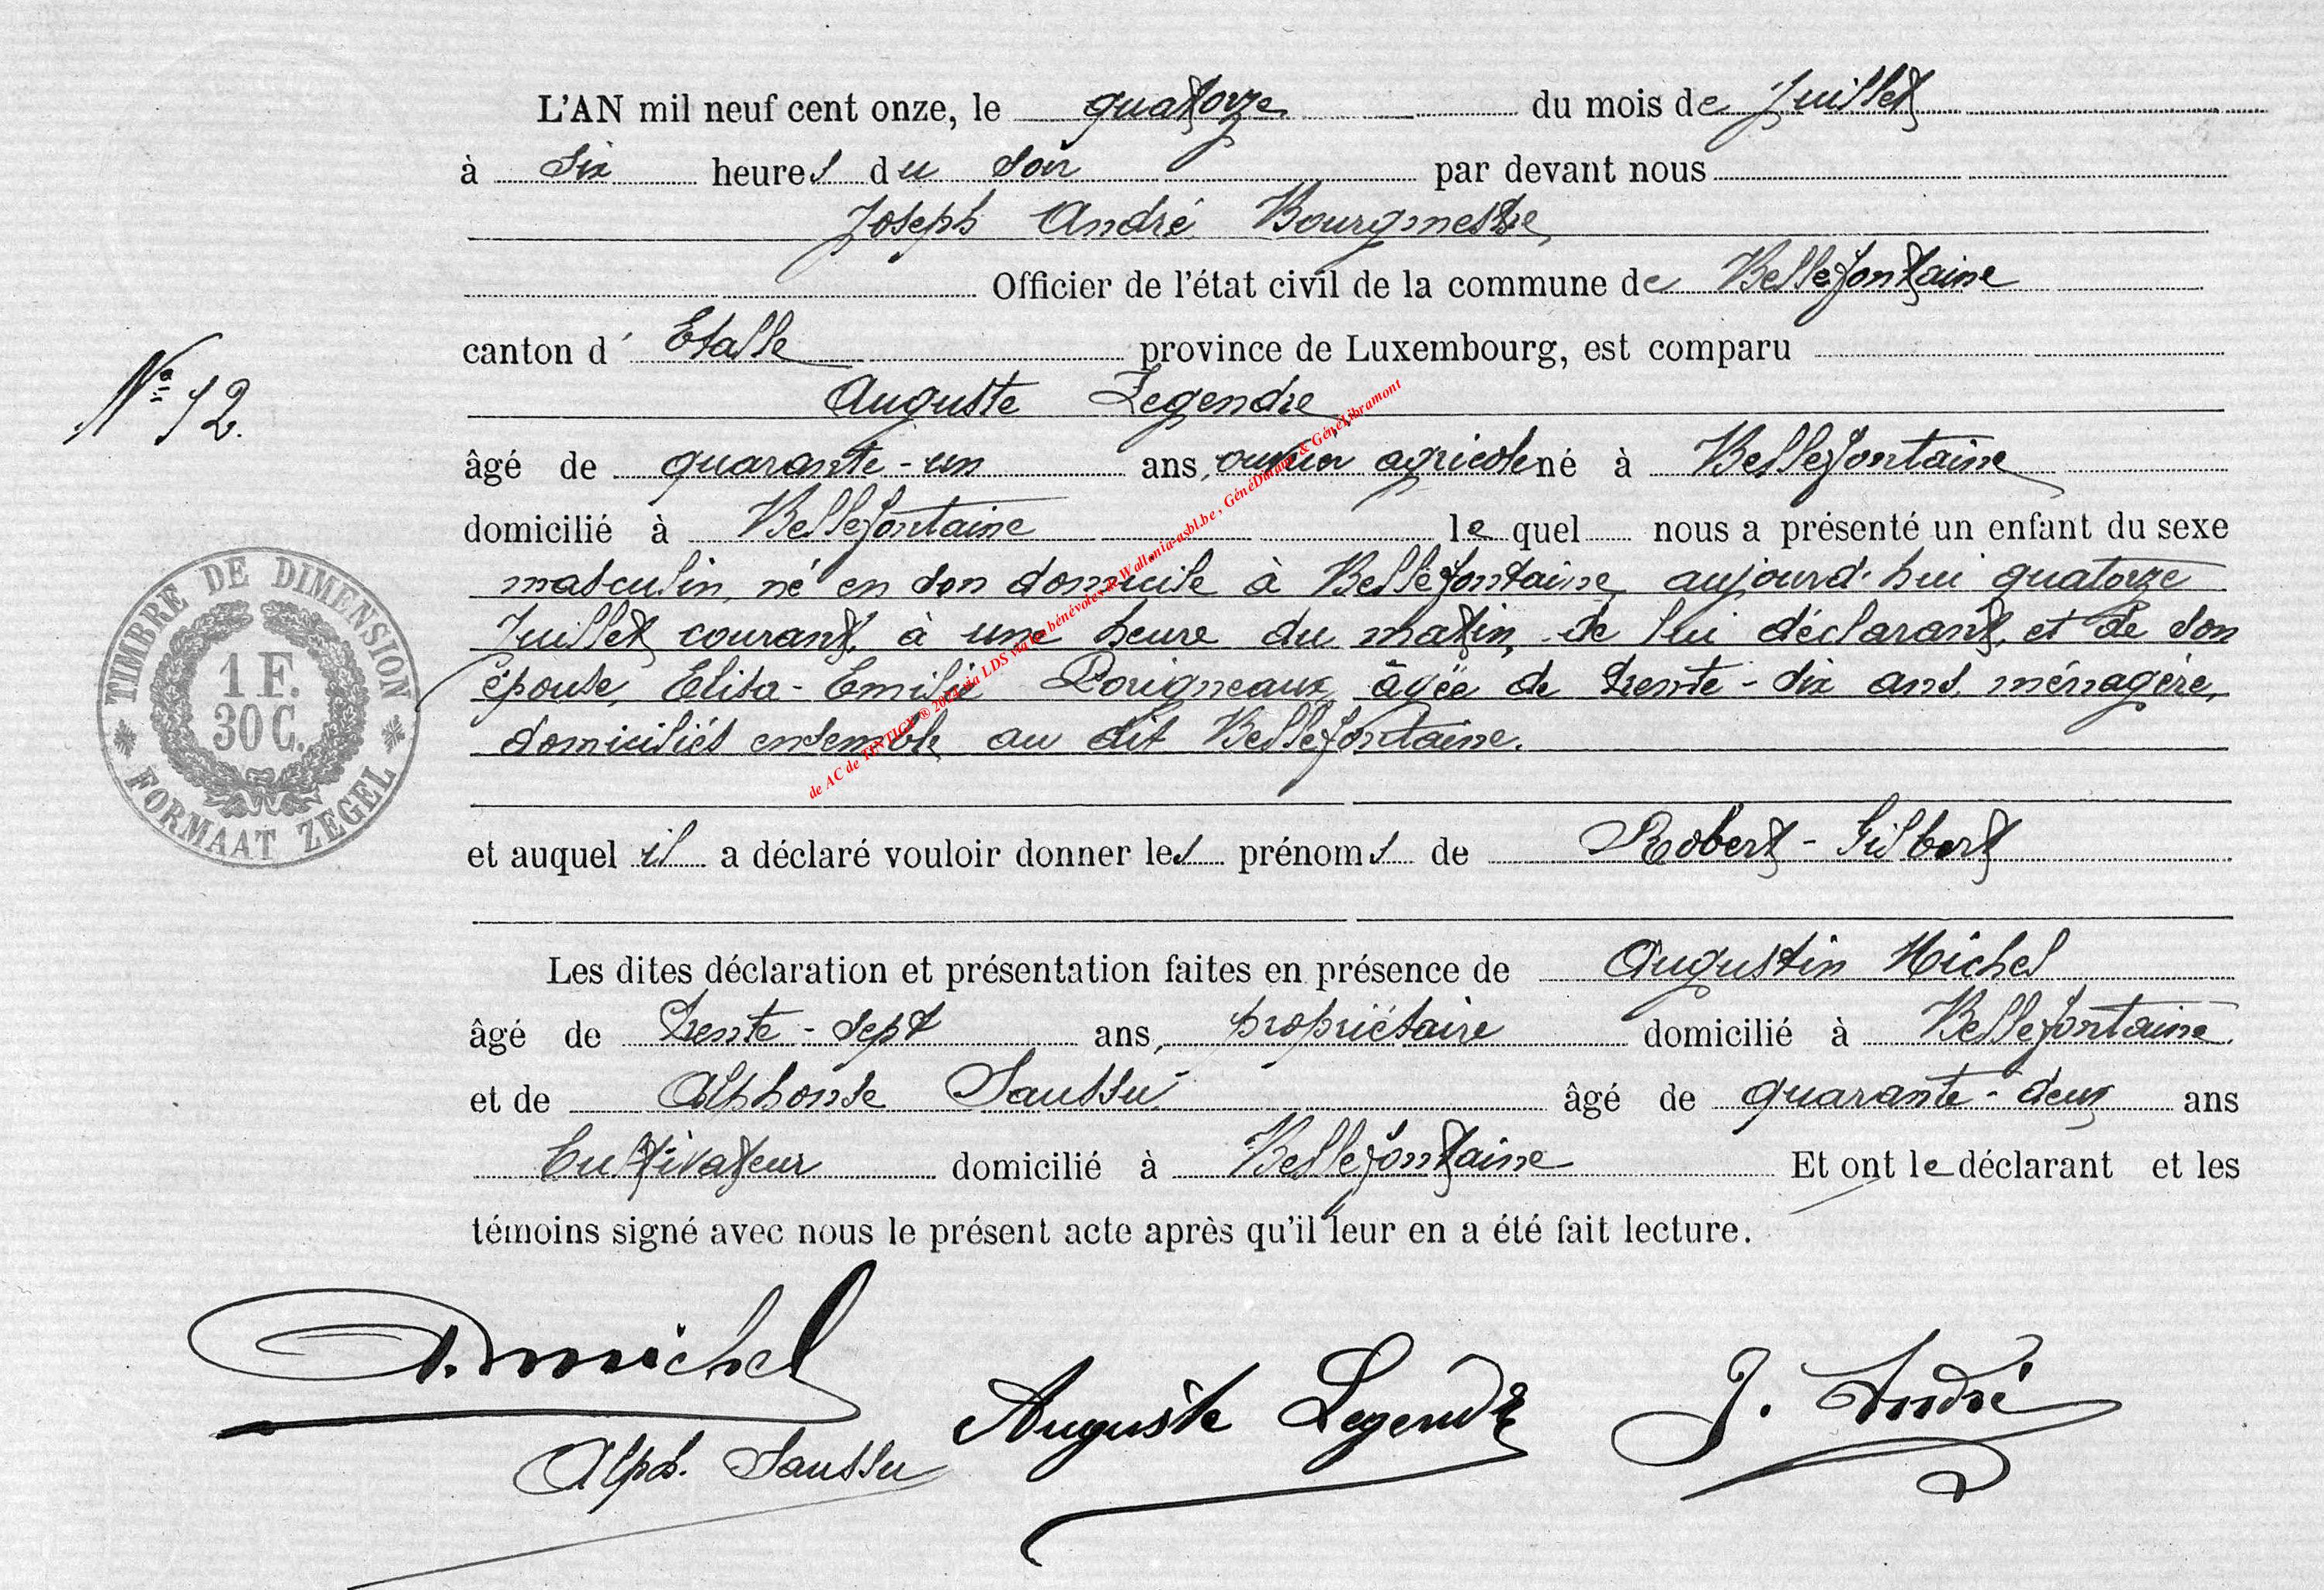 L'AN mil neuf cent onze, le quatorze du mois de Juillet
à six heures du soir par devant nous
Joseph André Bourgmestre
Officier de l'état civil de la commune de Bellefontaine
canton d' Etalle province de Luxembourg, est comparu
Auguste Legendre
N° 12.
âgé de quarante-un ans, ouvrier agricole né à Bellefontaine
domicilié à Bellefontaine lequel nous a présenté un enfant du sexe
masculin, né en son domicile à Bellefontaine aujourd'hui quatorze
Juillet courant, à une heure du matin, de lui déclarant, et de son
épouse, Elisa-Emilie Porigneaux, âgée de trente-six ans, ménagère,
domiciliés ensemble au dit Bellefontaine.
TIMBRE DE DIMENSION
1 F.
30 C.
FORMAAT ZEGEL
et auquel il a déclaré vouloir donner les prénoms de Robert-Gilbert
Les dites déclaration et présentation faites en présence de Augustin Michel
âgé de trente-sept ans, propriétaire domicilié à Bellefontaine
et de Alphonse Saussu âgé de quarante-deux ans
Cultivateur domicilié à Bellefontaine Et ont le déclarant et les
témoins signé avec nous le présent acte après qu'il leur en a été fait lecture.
A. Michel
Auguste Legendre
J. André
Alph. Saussu
de AC de TINTIGNY ® 2024 via LDS via les bénévoles de Wallonia-asbl.be, GénéDinant & GénéLibramont